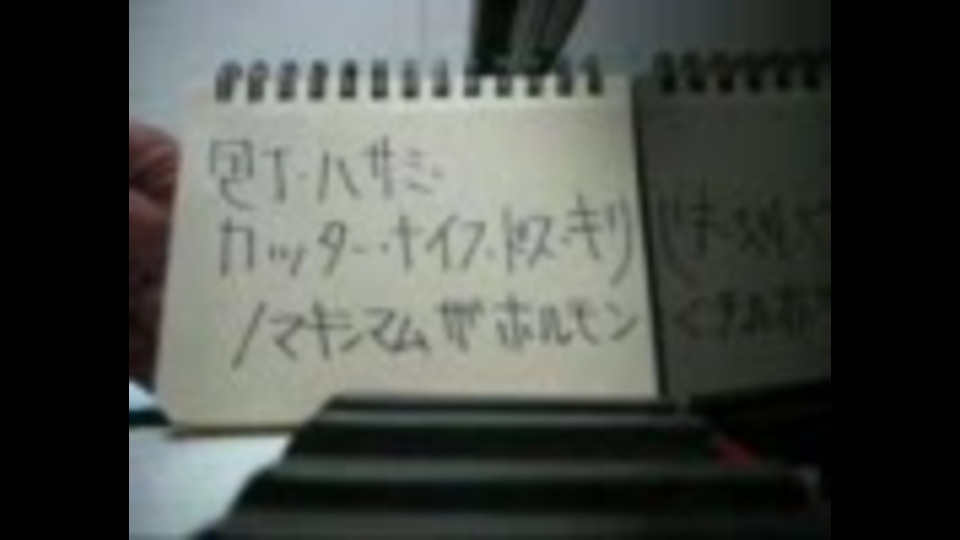 包丁・ハサミ・
カッター・ナイフ・ドス・キリ
/マキシマム ザ ホルモン